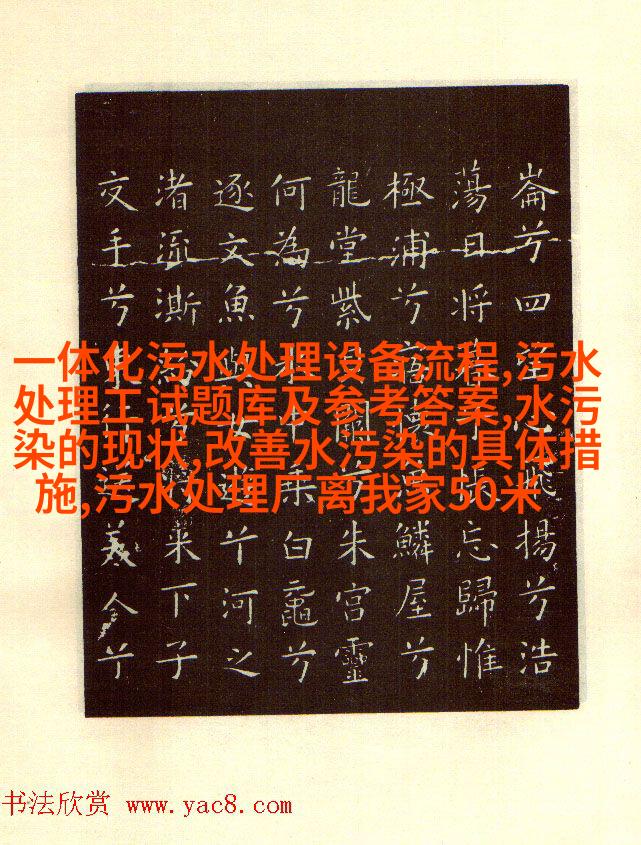 崙兮四望心飛揚兮浩
蕩日將暮兮悵忘歸惟
極浦兮寤懷鱗屋兮
龍堂紫闕兮朱宮靈
何為兮水中乘白黿兮
逐文魚與女遊兮河之
渚流澌兮來下子
交手兮東行美人兮
一体化污水处理设备流程,污水
处理工试题库及参考答案,水污
染的现状,改善水污染的具体措
施,污水处理厂离我家50米
书法欣赏 www.yac8.com